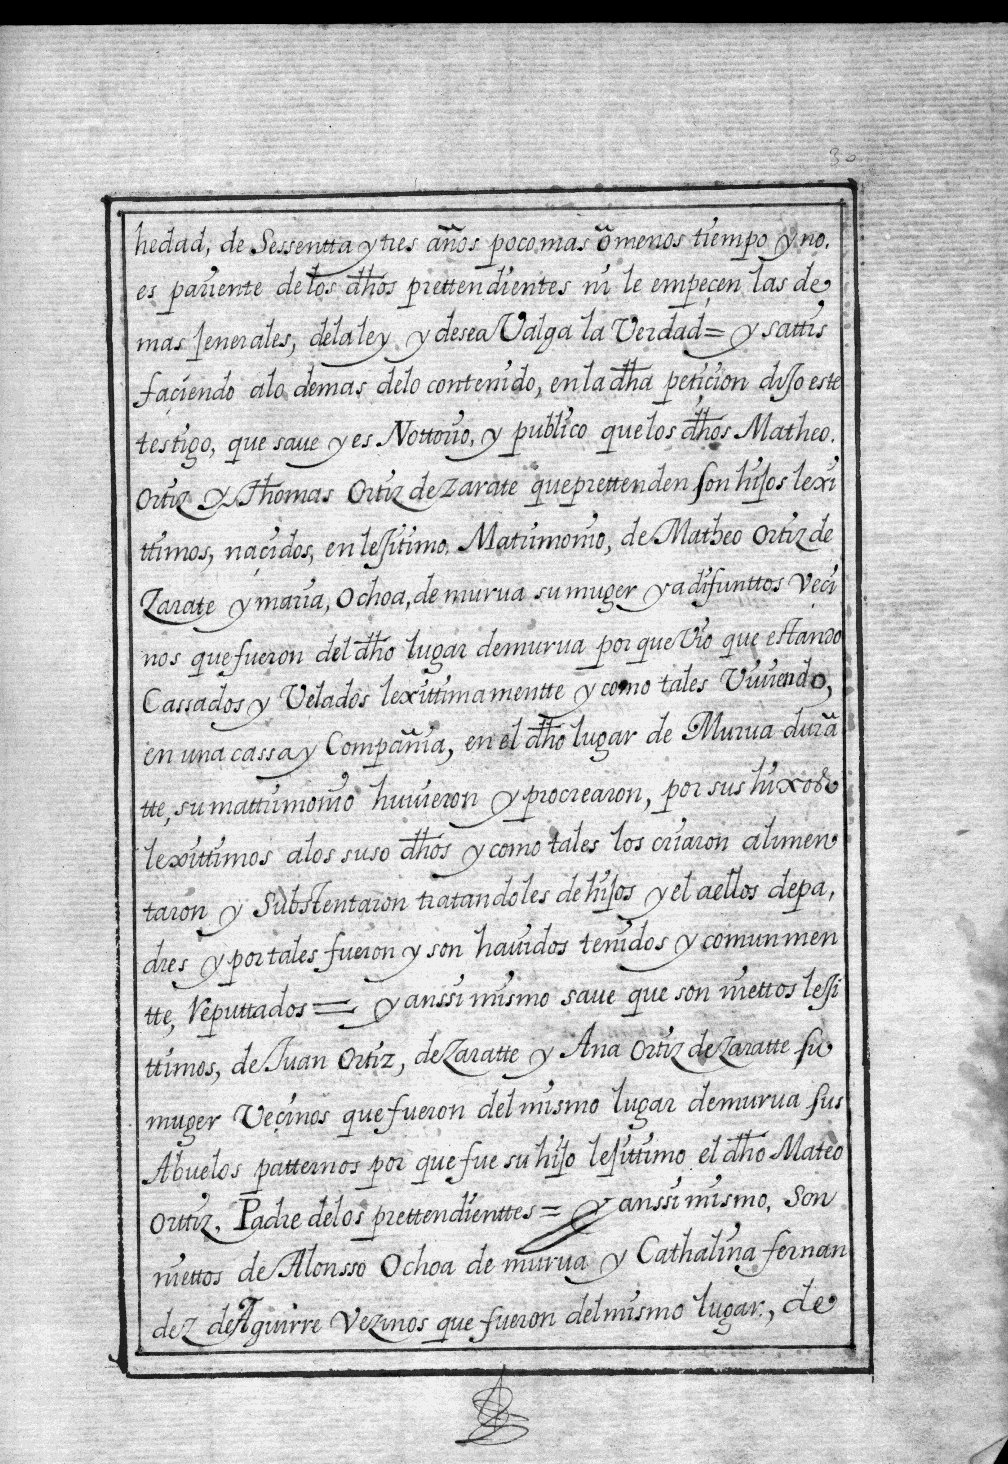 30
hedad, de Sessentta y tres años poco mas õ menos tiempo y no.
es pariente de los dhos prettendientes ni le empeçen las de
mas jenerales, de la ley y desea Valga la Verdad = y sattis
façiendo alo demas delo contenido, en la dha petiçion dijo este
testigo, que saue y es Nottorio, y publico que los dhos Matheo.
Ortiz y Thomas Ortiz de Zarate que prettenden son hijos lexi
ttimos, naçidos, en lejitimo. Matrimonio, de Matheo Ortiz de
Zarate y maria, Ochoa, de murua su muger ya difunttos Veçi
nos que fueron del dho lugar de murua por que Vio que estando
Cassados y Velados lexittimamentte y como tales Viuiendo,
en una cassa y Compañia, en el dho lugar de Murua durã
tte, su mattrimonio huuieron y procrearon, por sus hixos
lexittimos alos suso dhos y como tales los criaron alimen
taron y Substentaron tratandoles de hijos y el a ellos de pa,
dres y por tales fueron y son hauidos tenidos y comunmen
tte, Reputtados = y anssi mismo saue que son niettos leji
ttimos, de Juan Ortiz, de Zaratte y Ana Ortiz de Zaratte su
muger Veçinos que fueron del mismo lugar de murua sus
Abuelos patternos por que fue su hijo lejittimo el dho Mateo
Orttiz, Padre de los prettendienttes = y anssi mismo, Son
niettos de Alonsso Ochoa de murua y Cathalina fernan
dez de Aguirre Vezinos que fueron del mismo lugar, de